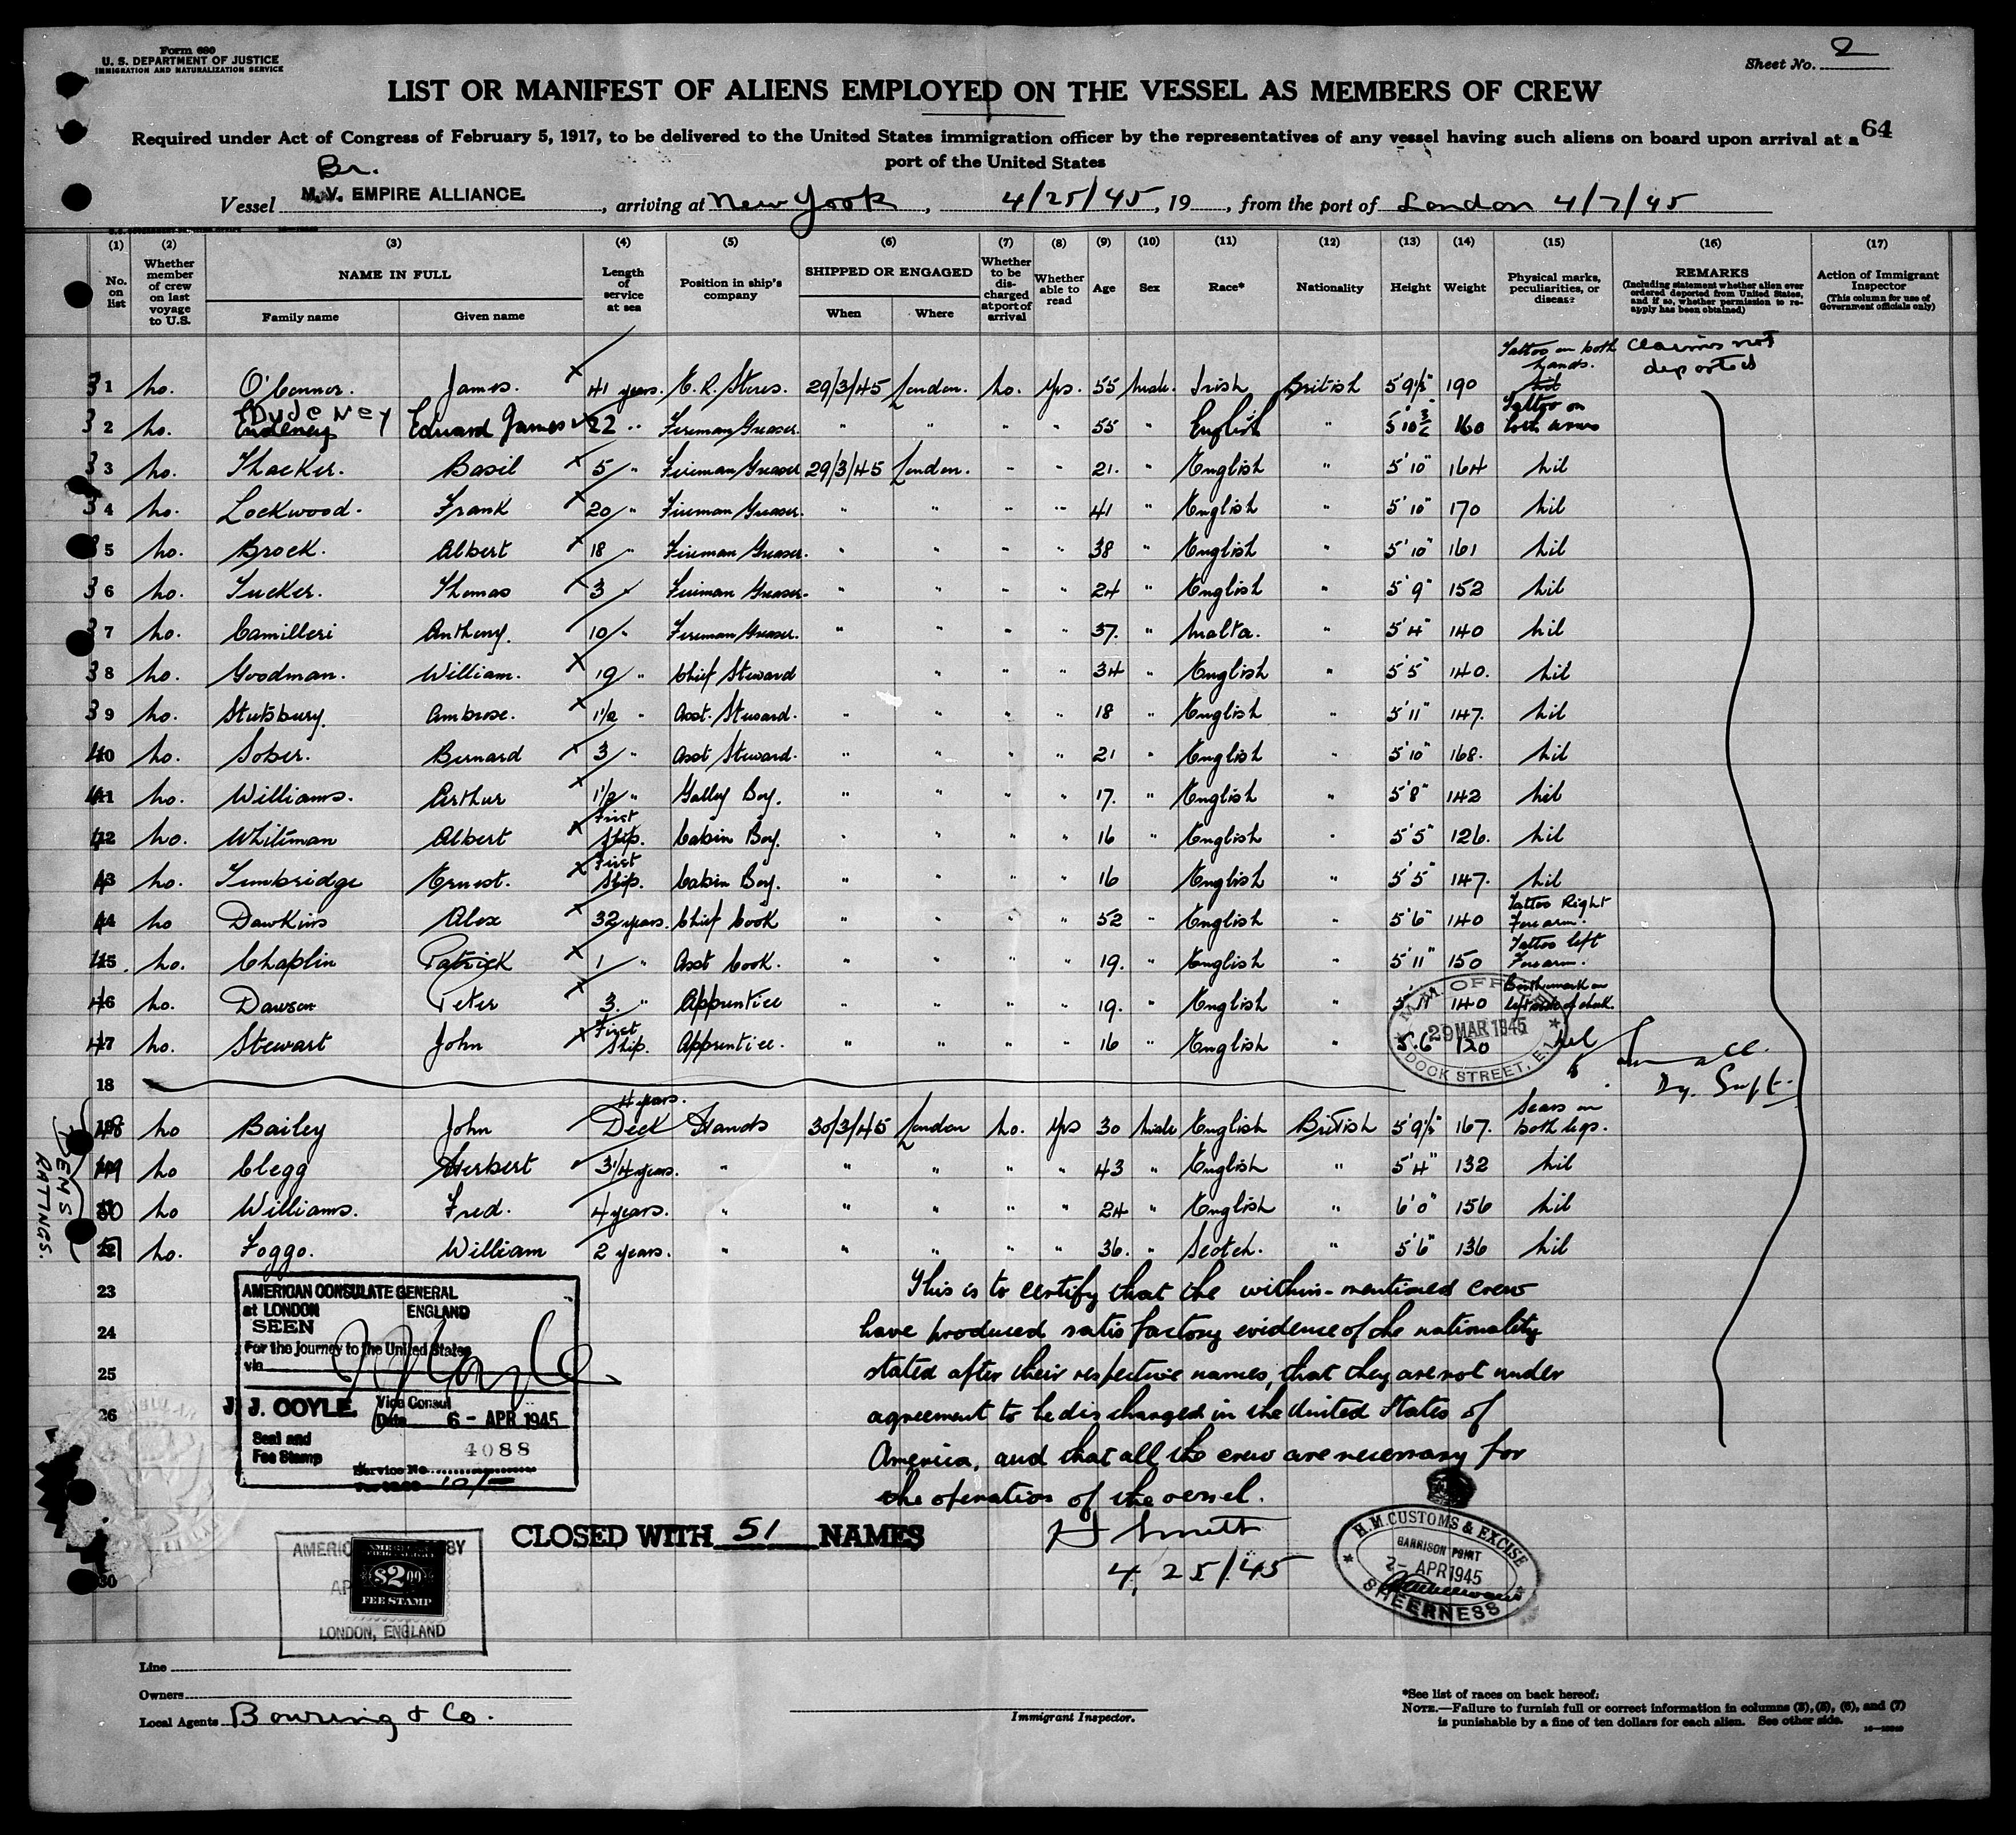 Form 680
U. S. DEPARTMENT OF JUSTICE
IMMIGRATION AND NATURALIZATION SERVICE
Sheet No. 2
LIST OR MANIFEST OF ALIENS EMPLOYED ON THE VESSEL AS MEMBERS OF CREW
Required under Act of Congress of February 5, 1917, to be delivered to the United States immigration officer by the representatives of any vessel having such aliens on board upon arrival at a
port of the United States
64
Br.
Vessel M.V. EMPIRE ALLIANCE. , arriving at New York , 4/25/45, 19 , from the port of London 4/7/45
(1) (2) (3) (4) (5) (6) (7) (8) (9) (10) (11) (12) (13) (14) (15) (16) (17)
No. on list
Whether member of crew on last voyage to U.S.
NAME IN FULL
Family name Given name
Length of service at sea
Position in ship's company
SHIPPED OR ENGAGED
When Where
Whether to be discharged at port of arrival
Whether able to read
Age
Sex
Race*
Nationality
Height
Weight
Physical marks, peculiarities, or disease
REMARKS
(Including statement whether alien ever ordered deported from United States, and if so, whether permission to reapply has been obtained)
Action of Immigrant Inspector
(This column for use of Government officials only)
Claims not deported
31 no. O'Connor. James. 41 years. E. R. Stores. 29/3/45 London. no. yes. 55 male. Irish British 5'9½" 190 Tattoo on both hands.
32 no. Dudeney Edward James 22 " Fireman Greaser. " " 55 " English " 160 Tattoo on both arms
33 no. Thacker. Basil 5 " Fireman Greaser 29/3/45 London. " " 21. " English " 5'10" 164 nil
34 no. Lockwood. Frank 20 " Fireman Greaser. " " " " 41 " English " 5'10" 170 nil
35 no. Brock. Albert 18 " Fireman Greaser. " " " " 38 " English " 5'10" 161 nil
36 no. Tucker. Thomas 3 " Fireman Greaser. " " " " 24 " English " 5'9" 152 nil
37 no. Camilleri Anthony. 10 " Fireman Greaser. " " " " 37. " Malta. " 5'4" 140 nil
38 no. Goodman. William. 19 " Chief Steward " " " 34 " English " 5'5" 140. nil
39 no. Stutsbury. Ambrose. 1½ " Asst. Steward. " " " " 18 " English " 5'11" 147. nil
40 no. Sober. Bernard 3 " Asst Steward. " " " " 21 " English " 5'10" 168. nil
41 no. Williams. Arthur 1½ " Galley Boy. " " " " 17. " English " 5'8" 142 nil
42 no. Whiteman Albert First Ship. Cabin Boy. " " " " 16 " English " 5'5" 126. nil
43 no. Tumbridge Ernest. First Ship. Cabin Boy. " " " " 16 English " 5'5" 147. nil
44 no Dawkins Alex 32 years. Chief Cook " " " " 52 " English " 5'6" 140 Tattoo Right Forearm.
45 no. Chaplin Patrick 1 " Asst Cook. " " " " 19. " English " 5'11" 150 Tattoo left Forearm.
46 no. Dawson Peter 3. " Apprentice " " " " 19. " English " 140 Birthmark on left side of cheek.
47 no. Stewart John First Ship. Apprentice. " " " " 16 " English " 5.6" 120 nil
18
Dy. Supt.
M.M. OFFICE
29 MAR 1945
DOCK STREET, E.1
48 no Bailey John 4 years. Deck Hands 30/3/45 London no. yes 30 male English British 5'9½" 167. Scars on both legs.
49 no Clegg Herbert 3¼ years. " " " " " 43 " English " 5'4" 132 nil
50 no Williams. Fred. 4 years. " " " " " 24 " English " 6'0" 156 nil
51 no. Foggo. William 2 years. " " " " " 36. " Scotch. " 5'6" 136 nil
DEMS RATINGS.
23
24
25
26
30
This is to certify that the within-mentioned crew
have produced satisfactory evidence of the nationality
stated after their respective names, that they are not under
agreement to be discharged in the United States of
America, and that all the crew are necessary for
the operation of the vessel.
AMERICAN CONSULATE GENERAL
at LONDON ENGLAND
SEEN
For the journey to the United States
via
J. J. COYLE. Vice Consul
Date 6 - APR 1945
Seal and
Fee Stamp
4088
Service No.
10/-
CLOSED WITH 51 NAMES
H Smith
4, 25/45
H.M. CUSTOMS & EXCISE
GARRISON POINT
2- APR 1945
SHEERNESS
$2.00
FEE STAMP
LONDON, ENGLAND
Line
Owners
Local Agents Bowring & Co.
Immigrant Inspector.
*See list of races on back hereof.
NOTE.—Failure to furnish full or correct information in columns (2), (5), (6), and (7)
is punishable by a fine of ten dollars for each alien. See other side.